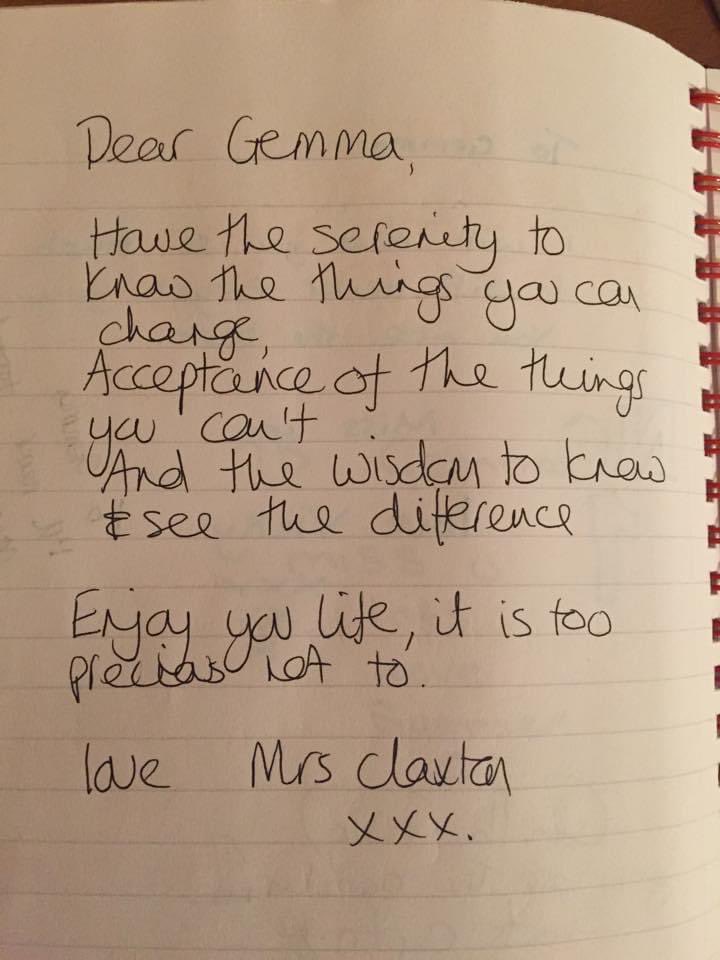 Dear Gemma,
Have the serenity to
know the things you can
change,
Acceptance of the things
you can't
And the wisdom to know
& see the difference
Enjoy you life, it is too
precious not to.
love Mrs Claxton
xxx.